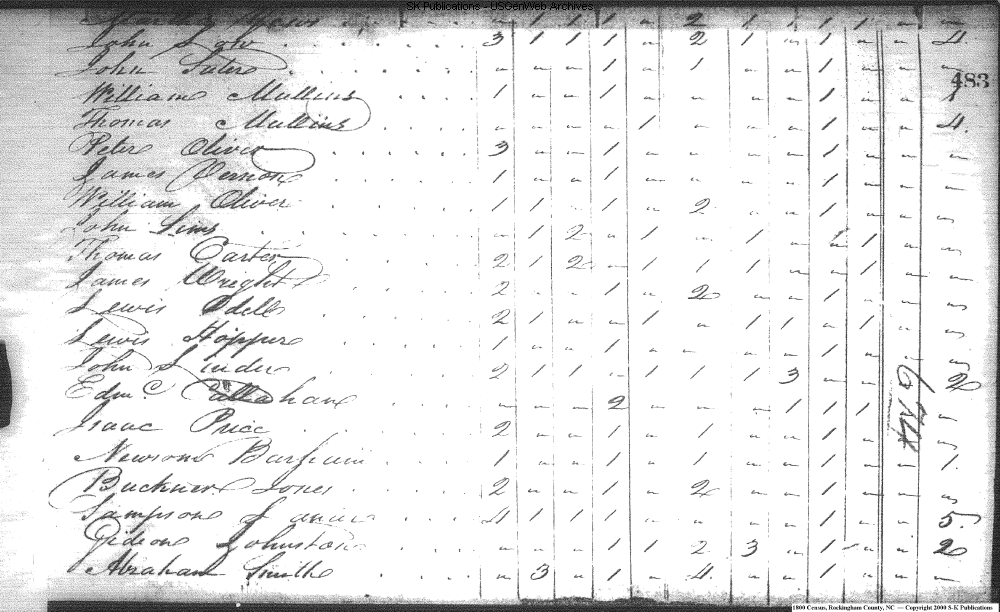 SK Publications - USGenWeb Archives
John 3 1 1 1 " 2 1 " 1 " " 4
John " " " 1 " 1 " " 1 " "
483
William Mullins 1 " " 1 " " " " 1 " " 1
Thomas Mullins " " " " 1 " " " 1 " " 4
Peter Oliver 3 " " 1 " " " " 1 " " "
James Vernon 1 " " 1 " " " " 1 " " "
William Oliver 1 1 " 1 " 2 " " 1 " " "
John Sims " 1 2 " 1 " 1 " 1 " "
Thomas Carter 2 1 2 " 1 1 1 " " 1 " "
James Wright 2 " " 1 " 2 " " 1 " " "
Lewis Odell 2 1 " " 1 " 1 1 " 1 " "
Lewis Hopper 1 " " 1 " " " " 1 " " "
John 2 1 1 " 1 1 1 3 " " 2
Edmd. Callahan " " " 2 " " " 1 1 1 "
Isaac Price 2 " " 1 " 1 " " 1 " " "
Newsom Barham 1 " " 1 " 1 " " 1 " " 1
Buckner Jones 2 " " 1 " 2 " " 1 " " "
Sampson Lanier 4 1 1 1 " " " " 1 " " 5
Gideon Johnston " " " 1 1 2 3 " 1 " " 2
Abraham Smith " 3 " 1 " 4 " " 1 " " "
1800 Census, Rockingham County, NC — Copyright 2000 S-K Publications